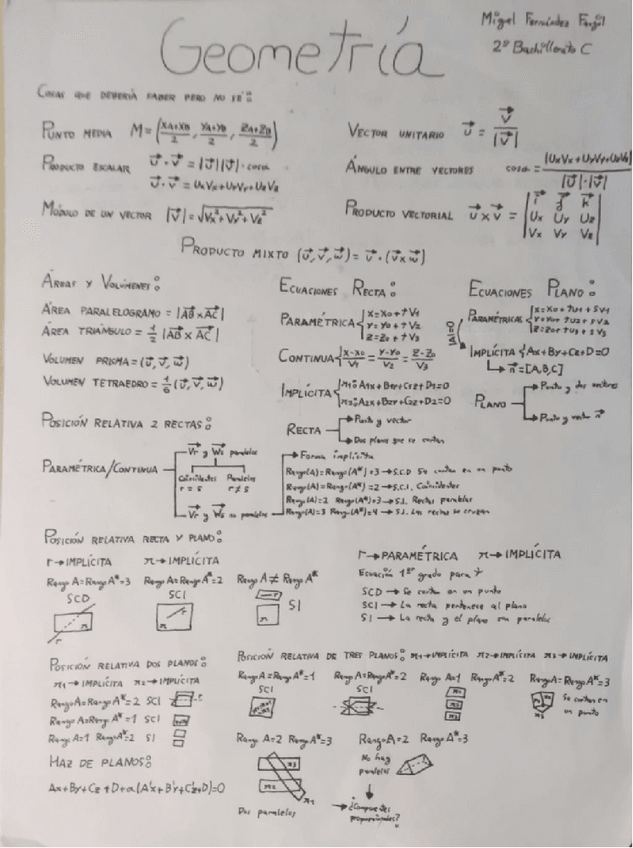 Miguel Fernández
2º Bachillerato C
Geometría
COSAS QUE DEBERÍA SABER PERO NO SÉ:
PUNTO MEDIO M = (XA+XB/2, YA+YB/2, ZA+ZB/2)
VECTOR UNITARIO u⃗ = v⃗/|v⃗|
PRODUCTO ESCALAR u⃗·v⃗ = |u⃗||v⃗|·cosα
u⃗·v⃗ = UxVx+UyVy+UzVz
ÁNGULO ENTRE VECTORES cosα = |UxVx+UyVy+UzVz|/|u⃗|·|v⃗|
MÓDULO DE UN VECTOR |v⃗| = √Vx²+Vy²+Vz²
PRODUCTO VECTORIAL u⃗×v⃗ = | i⃗ j⃗ k⃗ |
Ux Uy Uz
Vx Vy Vz
PRODUCTO MIXTO (u⃗,v⃗,w⃗) = u⃗·(v⃗×w⃗)
ÁREAS Y VOLÚMENES:
ÁREA PARALELOGRAMO = |AB⃗×AC⃗|
ÁREA TRIÁNGULO = 1/2 |AB⃗×AC⃗|
VOLUMEN PRISMA = (u⃗,v⃗,w⃗)
VOLUMEN TETRAEDRO = 1/6 (u⃗,v⃗,w⃗)
ECUACIONES RECTA:
PARAMÉTRICA { X=X0+tV1
Y=Y0+tV2
Z=Z0+tV3
CONTINUA { X-X0/V1 = Y-Y0/V2 = Z-Z0/V3
IMPLÍCITA { π1: A1X+B1Y+C1Z+D1=0
π2: A2X+B2Y+C2Z+D2=0
RECTA → Punto y vector
→ Dos planos que se cortan
ECUACIONES PLANO:
PARAMÉTRICAS { X=X0+tU1+sV1
Y=Y0+tU2+sV2
Z=Z0+tU3+sV3
IMPLÍCITA { Ax+By+Cz+D=0
→ n⃗=[A,B,C]
PLANO → Punto y dos vectores
→ Punto y vector n⃗
POSICIÓN RELATIVA 2 RECTAS:
PARAMÉTRICA/CONTINUA
Vr⃗ y Ws⃗ paralelos
Coincidentes Paralelas
r = s r ≠ s
→ Vr⃗ y Ws⃗ no paralelos
→ Forma implícita
Rango(A)=Rango(A*)=3 → S.C.D Se cortan en un punto
Rango(A)=Rango(A*)=2 → S.C.I. Coincidentes
Rango(A)=2 Rango(A*)=3 → S.I. Rectas paralelas
Rango(A)=3 Rango(A*)=4 → S.I. Las rectas se cruzan
POSICIÓN RELATIVA RECTA Y PLANO:
r→IMPLÍCITA π→IMPLÍCITA
Rango A=Rango A*=3 Rango A=Rango A*=2 Rango A≠Rango A*
SCD SCI SI
r π π r π
r→PARAMÉTRICA π→IMPLÍCITA
Ecuación 1er grado para t
SCD → Se cortan en un punto
SCI → La recta pertenece al plano
SI → La recta y el plano son paralelos
POSICIÓN RELATIVA DOS PLANOS:
π1→IMPLÍCITA π2→IMPLÍCITA
Rango A=Rango A*=2 SCI
Rango A=Rango A*=1 SCI
Rango A=1 Rango A*=2 SI
POSICIÓN RELATIVA DE TRES PLANOS: π1→IMPLÍCITA π2→IMPLÍCITA π3→IMPLÍCITA
Rango A=Rango A*=1 Rango A=Rango A*=2 Rango A=1 Rango A*=2 Rango A=Rango A*=3
SCI SCI
π1
π2
π3
Se cortan en
un punto
Rango A=2 Rango A*=3 Rango A=2 Rango A*=3
π3
π2
π1
Dos paralelos
No hay
paralelos
→ ¿Comparte
proporcionales?
HAZ DE PLANOS:
Ax+By+Cz+D+α(A'x+B'y+C'z+D')=0